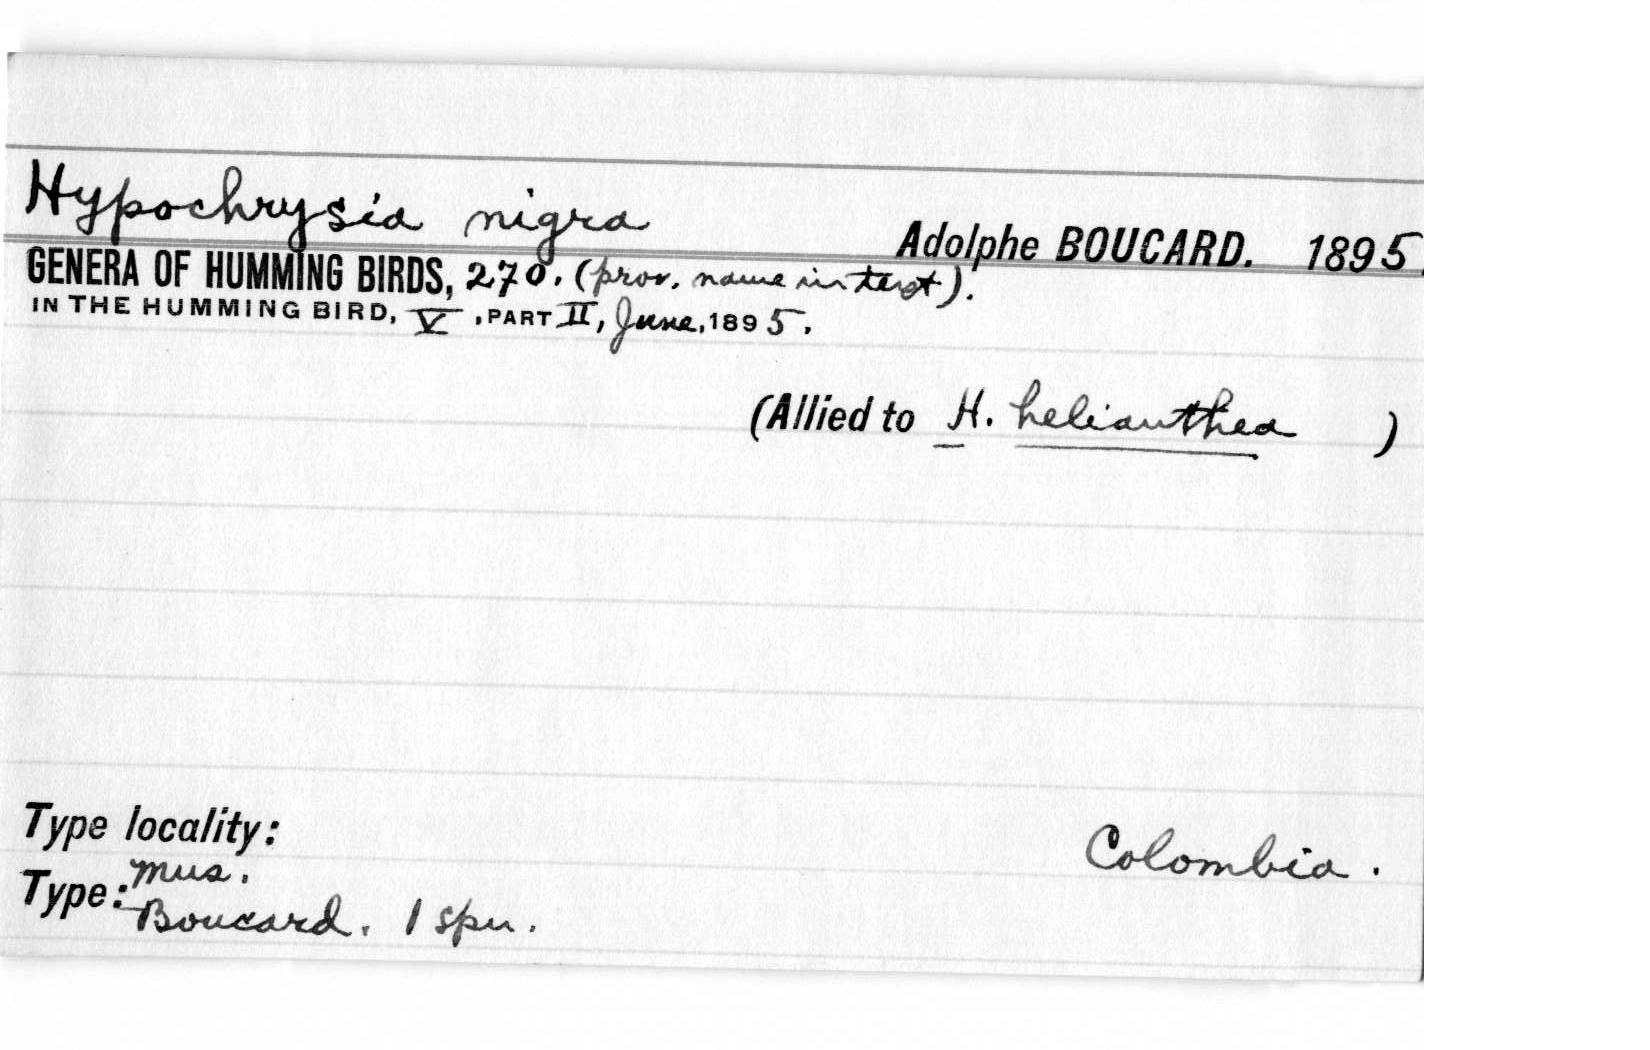 Hypochrysia nigra Adolphe BOUCARD. 1895.
GENERA OF HUMMING BIRDS, 270. (prov. name in text).
IN THE HUMMING BIRD, V, PART II, June, 1895.
(Allied to H. helianthea )
Type locality: Colombia.
Type: Mus.
Boucard. 1 spn.